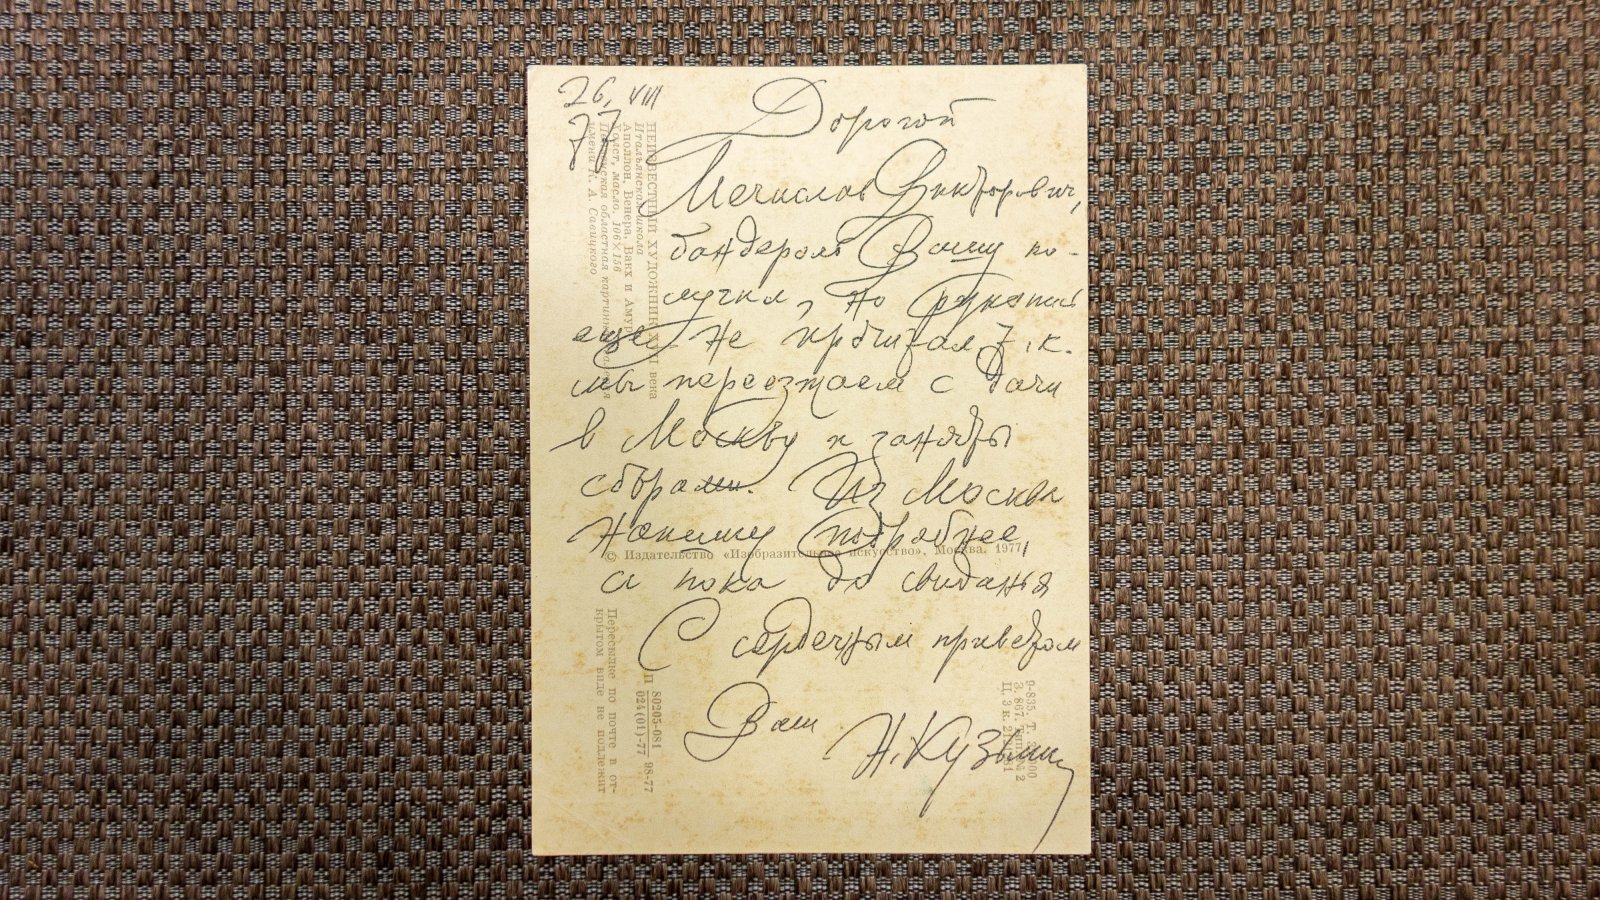 26, VIII
77
Дорогой
Мечислав Викторович,
бандероль Вашу по-
лучил, но рукописи
еще не прочитал, т. к.
мы переезжаем с дачи
в Москву и заняты
сборами. Из Москвы
напишу подробнее,
а пока до свиданья
С сердечным приветом
Ваш Н. Кузьмин
НЕИЗВЕСТНЫЙ ХУДОЖНИК века
Итальянская школа
Аполлон, Венера, Вакх и Амур
Холст, масло. 106×156
Пензенская областная картинная
имени К. А. Савицкого
© Издательство «Изобразительное искусство», Москва. 1977
Пересылке по почте в от-
крытом виде не подлежит
П 80205-081 98-77
024(01)-77
9-835. Т.
З. 867.
Ц. 3 к.